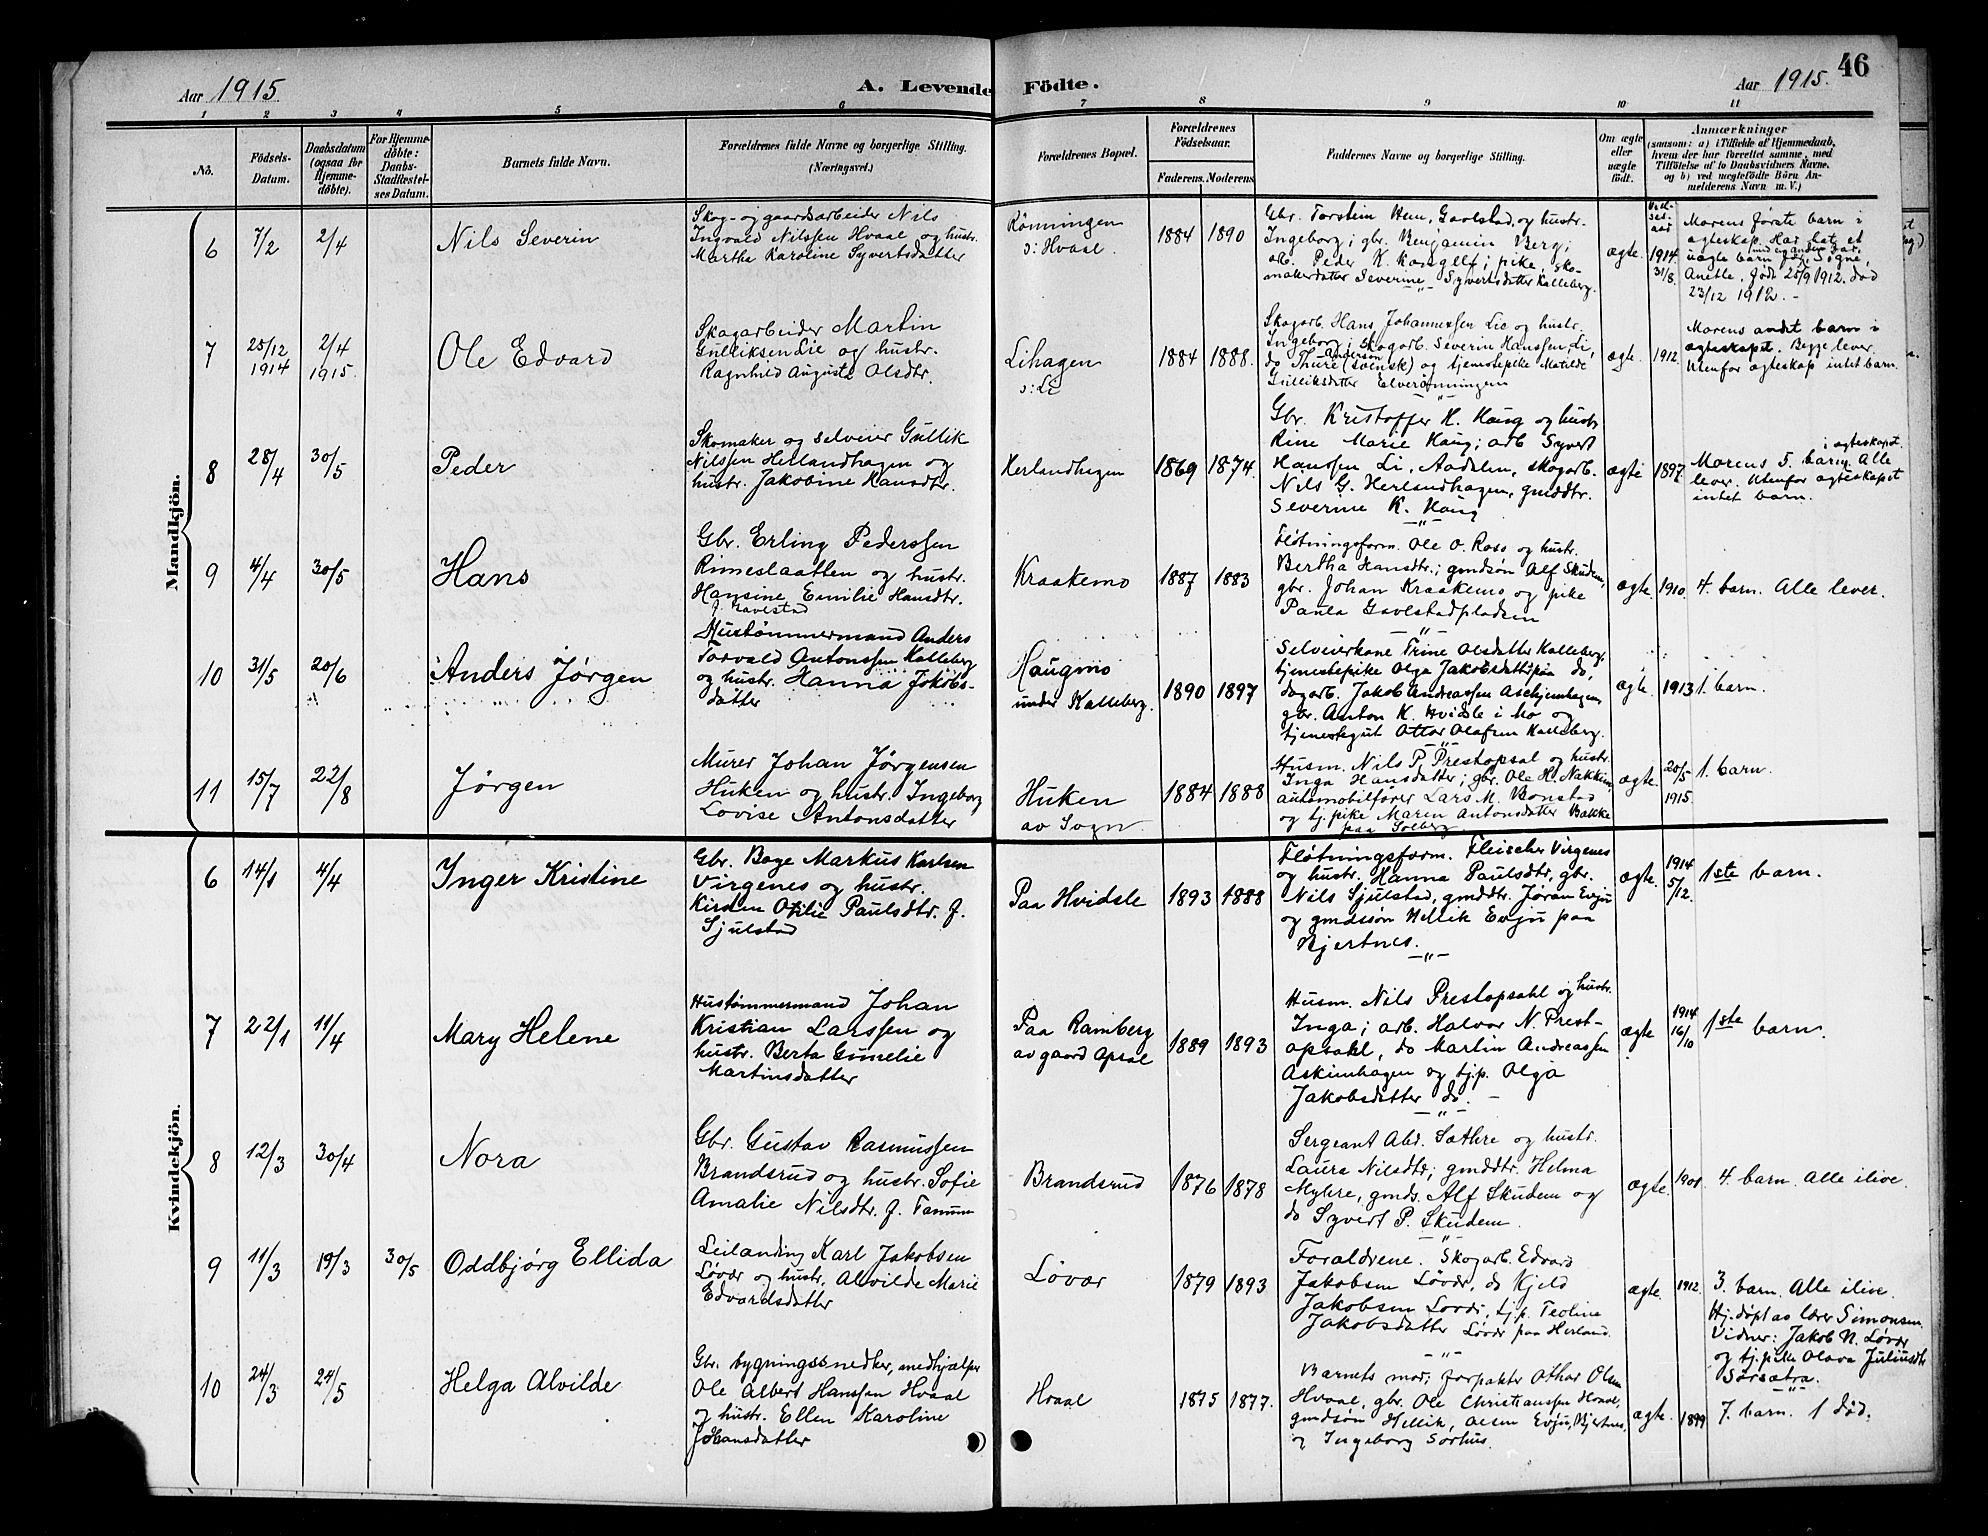 Aar 1915.
A. Levende Födte.
Aar 1915.
46
1 2 3 4 5 6 7 8 9 10 11
No.
Födsels-
Datum.
Daabsdatum
(ogsaa for
Hjemme-
döbte).
For Hjemme-
döbte:
Daabs-
Stadfæstel-
ses Datum.
Barnets fulde Navn.
Forældrenes fulde Navne og borgerlige Stilling.
(Næringsvei.)
Forældrenes Bopæl.
Forældrenes
Födselsaar.
Faderens. Moderens
Faddernes Navne og borgerlige Stilling.
Om ægte
eller
uægte
födt.
Anmærkninger
(saasom: a) i Tilfælde af Hjemmedaab,
hvem der har forrettet samme, med
Tilföielse af to Daabsvidners Navne,
og b) ved uægtefödte Börn An-
melderens Navn m. V.)
Mandkjön.
6
7/2
2/4
Nils Severin
Skog- og gaardsarbeider Nils
Ingvald Nilssen Hvaal og hustr.
Martha Karoline Syvertsdatter
Rönningen
o: Hvaal
1884 1890
Gbr. Torstein Hem, Gavlstad, og hustr.
Ingeborg; gbr. Benjamin Berg;
arb. Peder K. ; pike, sko-
makerdatter Severine Syvertsdatter Kalleberg.
ægte.
1914
31/8
Morens først barn i
ægteskap. Har hat et
uægte barn Signe,
Anette, født 25/9 1912. død
23/12 1912. -
7
25/12
1914
2/4
1915.
Ole Edvard
Skogarbeider Martin
Gulliksen Lie og hustr.
Ragnhild Auguste Olsdtr.
Lihagen
o: Li
1884 1888.
Skogarb. Hans Johannessen Lie og hustr.
Ingeborg; Skogarb. Severin Hanssen Li,
do Thure Anderson (svensk) og tjenestepike Matilde
Gulliksdatter Elverönningen
ægte.
1912.
Morens andet barn i
ægteskapet. Begge lever.
Utenfor ægteskap intet barn.
8
28/4
30/5
Peder
Skomaker og selveier Gullik
Nilssen Herlandhagen og
hustr. Jakobine Hansdtr.
Herlandhagen
1869 1874.
Gbr. Kristoffer H. Haug og hustr.
Rine Marie Haug; arb Syvert
Hanssen Li, Aadalen, skogarb.
Nils G. Herlandhagen, gmddtr.
Severine K. Haug
ægte
1897.
Morens 5. barn i ægteskapet. Alle
lever. Utenfor ægteskapet
intet barn.
9
4/4
30/5
Hans
Gbr. Erling Pederssen
Rimeslaatten og hustr.
Hansine Emilie Hansdtr.
f. Gavelstad
Kraakemo
1887 1883
Fløtningsform. Ole O. Roso og hustr.
Bertha Hansdtr.; gmdsön Alf Skudem,
gbr. Johan Kraakemo og pike
Paula Gavlstadpladsen
ægte.
1910.
4. barn. Alle lever.
10
31/5
20/6
Anders Jørgen
Hustømmermand Anders
Torvald Antonssen Kalleberg
og hustr. Hanna Jakobs-
datter
Haugmo
under Kalleberg.
1890 1897
Selveierkone Trine Olsdatter Kalleberg,
tjenestepike Olga Jakobsdatter paa do,
dagarb. Jakob Andreassen Aschjemhagen,
gbr. Anton K. Hvidsle i Mo og
tjenestegut Ottar Olafsen Kalleberg.
ægte.
1913
1. barn.
11
15/7
22/8
Jørgen
Murer Johan Jørgensen
Huken og hustr. Ingeborg
Lovise Antonsdatter
Huken
av Sogn.
1884 1888
Husm. Nils P. Prestopsal og hustr.
Inga Hansdatter; gbr. Ole H. Nakkim
automobilfører Lars M. Bonstad
og tj.pike Maren Antonsdatter Bakke
paa Solberg
ægte.
20/5
1915.
1. barn.
Kvindekjön.
6
14/1
4/4
Inger Kristine
Gbr. Boye Markus Karlsen
Virgenes og hustr.
Kirsten Otilie Paulsdtr. f.
Sjulstad
Paa Hvidsle
1893 1888
Fløtningsform. Fleischer Virgenes
og hustr. Hanna Paulsdtr, gbr.
Nils Sjulstad, gmddtr. Jøran Evju
og gmdssøn Hellik Evju paa
Hjertnes.
ægte.
1914
5/12.
1ste barn.
7
22/1
11/4
Mary Helene
Hustømmermand Johan
Kristian Larssen og
hustr. Berta Gunelie
Martinsdatter
Paa Ramberg
av gaard Opsal
1889 1893
Husm. Nils Prestopsahl og hustr.
Inga; arb. Halvor N. Prest-
opsahl, do Martin Andreassen
Askimhagen og tj.p. Olga
Jakobsdatter do. -
ægte
1914
16/10
1ste barn.
8
12/3
30/4
Nora
Gbr. Gustav Rasmussen
Brandsrud og hustr. Sofie
Amalie Nilsdtr. f. Tanum
Brandsrud
1876 1878
Sergeant Alv. Sathre og hustr.
Laura Nilsdtr; gmddtr. Helma
Myhre, gmds. Alf Skudem og
do Syvert P. Skudem.
ægte.
4. barn. Alle ilive.
9
11/3
19/3
30/5
Oddbjørg Ellida
Leilænding Karl Jakobsen
Løvær og hustr. Alvilde Marie
Edvardsdatter
Løvær
1879 1893
Forældrene. Skogarb. Edvard
Jakobsen Løvær, do Kjeld
Jakobsen Løvær, tj.p. Teoline
Jakobsdatter Løvær paa Herland.
ægte.
1912.
3. barn. Alle ilive.
Hj.døpt av lærer Simonsen.
Vidner: Jakob N. Løvær
og tj.pike Olava Juliusdtr.
Sørsætra.
10
24/3
24/5
Helga Alvilde
Gbr. bygningssnedker, medhjælper
Ole Albert Hanssen Hvaal
og hustr. Ellen Karoline
Johansdatter
Hvaal
1875 1877.
Barnets mor, forpakter Othar Olsen
Hvaal, gbr. Ole Christianssen Hvaal,
gmdsøn Hellik Olsen Evju, Hjertnes,
og Ingeborg Sørhus.
ægte.
1899
7. barn. 1 død.